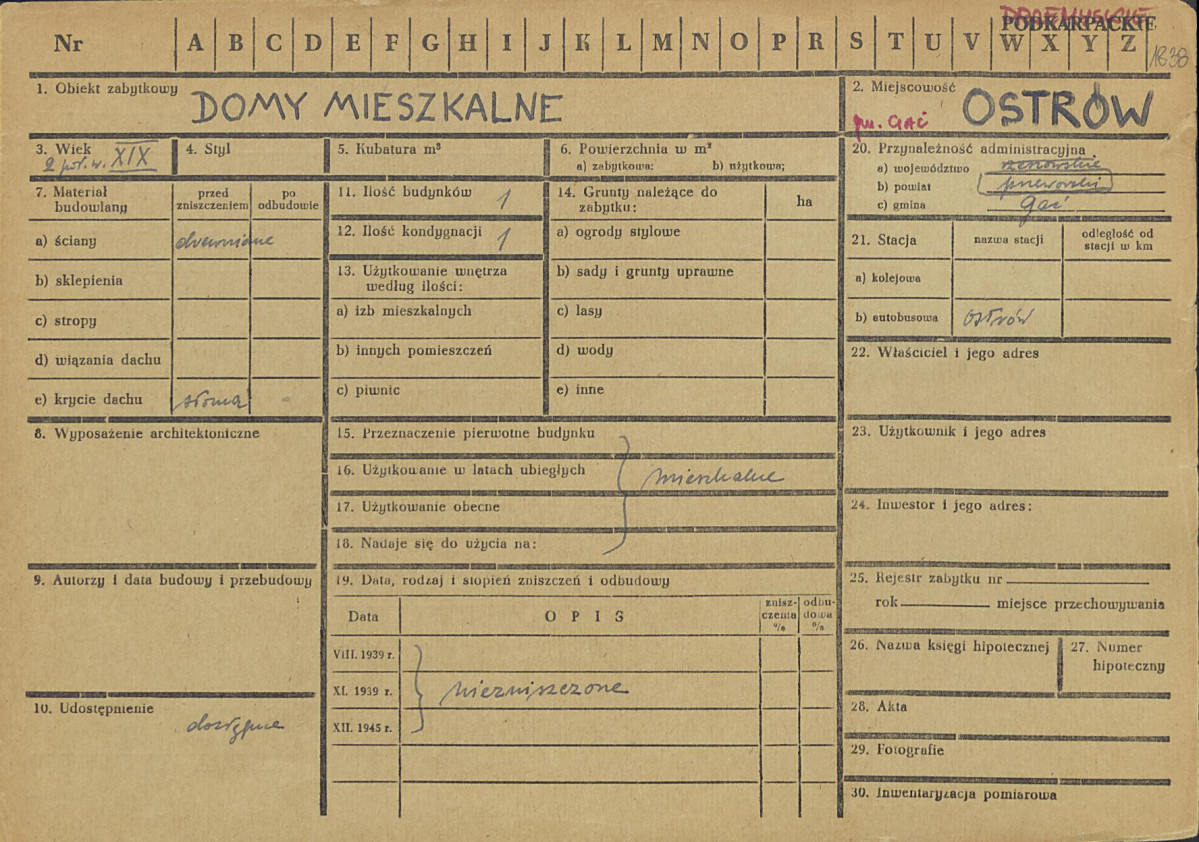 PRZEMYSKIE
PODKARPACKIE
Nr A B C D E F G H I J K L M N O P R S T U V W X Y Z
1838
1. Obiekt zabytkowy DOMY MIESZKALNE
2. Miejscowość OSTRÓW
gm. GAĆ
3. Wiek 2 poł. w. XIX
4. Styl
5. Kubatura m³
6. Powierzchnia w m²
a) zabytkowa: b) użytkowa;
7. Materiał budowlany
przed zniszczeniem
po odbudowie
a) ściany drewniane
b) sklepienia
c) stropy
d) wiązania dachu
e) krycie dachu słoma
8. Wyposażenie architektoniczne
9. Autorzy i data budowy i przebudowy
10. Udostępnienie
dostępne
11. Ilość budynków 1
12. Ilość kondygnacji 1
13. Użytkowanie wnętrza
według ilości:
a) izb mieszkalnych
b) innych pomieszczeń
c) piwnic
14. Grunty należące do
zabytku:
ha
a) ogrody stylowe
b) sady i grunty uprawne
c) lasy
d) wody
e) inne
15. Przeznaczenie pierwotne budynku
16. Użytkowanie w latach ubiegłych
mieszkalne
17. Użytkowanie obecne
18. Nadaje się do użycia na:
19. Data, rodzaj i stopień zniszczeń i odbudowy
Data
OPIS
znisz-
czenia
%
odbu-
dowa
%
VIII. 1939 r.
XI. 1939 r. niezniszczone
XII. 1945 r.
20. Przynależność administracyjna
a) województwo rzeszowskie
b) powiat przeworski
c) gmina Gać
21. Stacja
nazwa stacji
odległość od
stacji w km
a) kolejowa
b) autobusowa Ostrów
22. Właściciel i jego adres
23. Użytkownik i jego adres
24. Inwestor i jego adres:
25. Rejestr zabytku nr
rok miejsce przechowywania
26. Nazwa księgi hipotecznej
27. Numer
hipoteczny
28. Akta
29. Fotografie
30. Inwentaryzacja pomiarowa